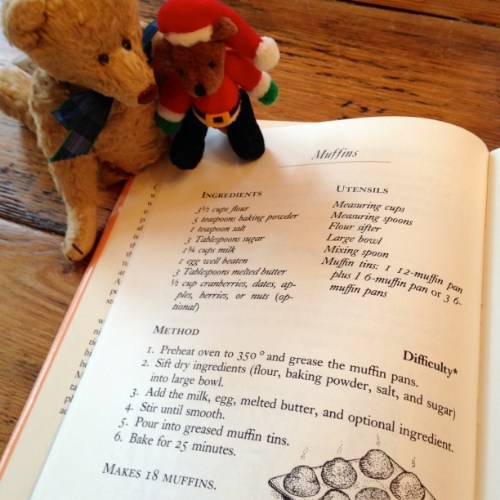 Muffins
INGREDIENTS
3½ cups flour
5 teaspoons baking powder
1 teaspoon salt
3 Tablespoons sugar
1¾ cups milk
1 egg well beaten
3 Tablespoons melted butter
½ cup cranberries, dates, ap-
ples, berries, or nuts (op-
tional)
UTENSILS
Measuring cups
Measuring spoons
Flour sifter
Large bowl
Mixing spoon
Muffin tins: 1 12-muffin pan
plus 1 6-muffin pan or 3 6-
muffin pans
METHOD
Difficulty*
1. Preheat oven to 350° and grease the muffin pans.
2. Sift dry ingredients (flour, baking powder, salt, and sugar)
into large bowl.
3. Add the milk, egg, melted butter, and optional ingredient.
4. Stir until smooth.
5. Pour into greased muffin tins.
6. Bake for 25 minutes.
MAKES 18 MUFFINS.